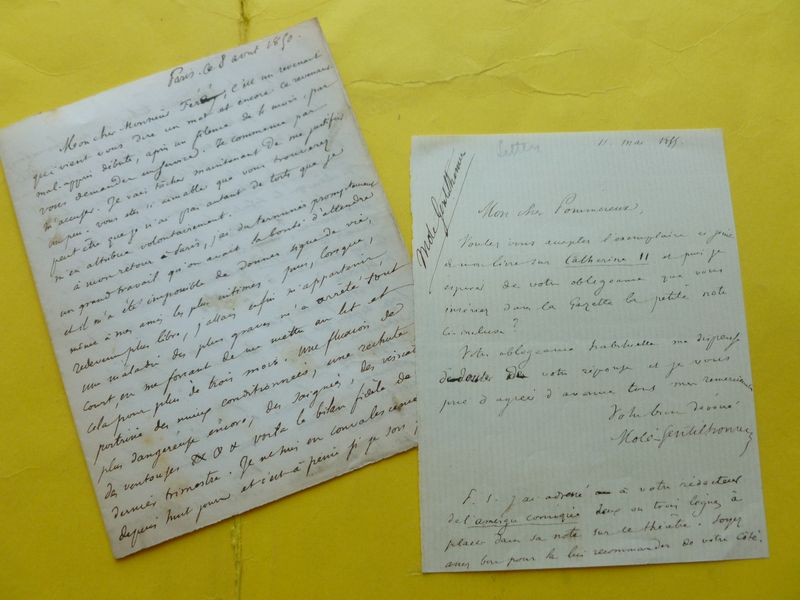 Paris. Ce 8 avril 1850.
Mon cher Monsieur Féréy, c'est un revenant
qui vient vous dire un mot et encore ce revenant
mal-appris débute, après un silence de 4 mois, par
vous demander un service. Je commence par
m'accuser. Je vais tâcher maintenant de me justifier
un peu. Vous êtes si aimable que vous trouverez
peut être que je n'ai pas autant de torts que je
m'en attribue volontairement.
à mon retour à Paris, j'ai du terminer promptement
un grand travail qu'on avait la bonté d'attendre
et il m'a été impossible de donner signe de vie,
même à mes amis les plus intimes. puis, lorsque,
redevenu plus libre, j'allais enfin m'appartenir,
une maladie des plus graves m'a arrêté tout
court en me forçant de me mettre au lit et
cela pour plus de trois mois. Une fluxion de
poitrine des mieux conditionnées, une rechute
plus dangereuse encore, des saignées, des
des ventouses & & & voilà le bilan fidèle de
dernier trimestre. Je ne suis en convalescence
depuis huit jours et c'est à peine si je
Letters
11. mai 1855.
Molé Gentilhomme
Mon cher Pommereux,
Voulez vous accepter l'exemplaire ci joint
de mon livre sur Catherine II et puis je
espérer de votre obligeance que vous
insérerez dans la Gazette la petite note
ci-incluse?
Votre obligeance habituelle me dispense
de douter de votre réponse et je vous
prie d'agréer d'avance tous mes remerciements
Votre bien dévoué
Molé-Gentilhomme
P. S. J'ai adressé à votre rédacteur
de l'ambigu comique deux ou trois lignes à
placer dans sa note sur ce théâtre. Soyez
assez bon pour la lui recommander de votre côté.